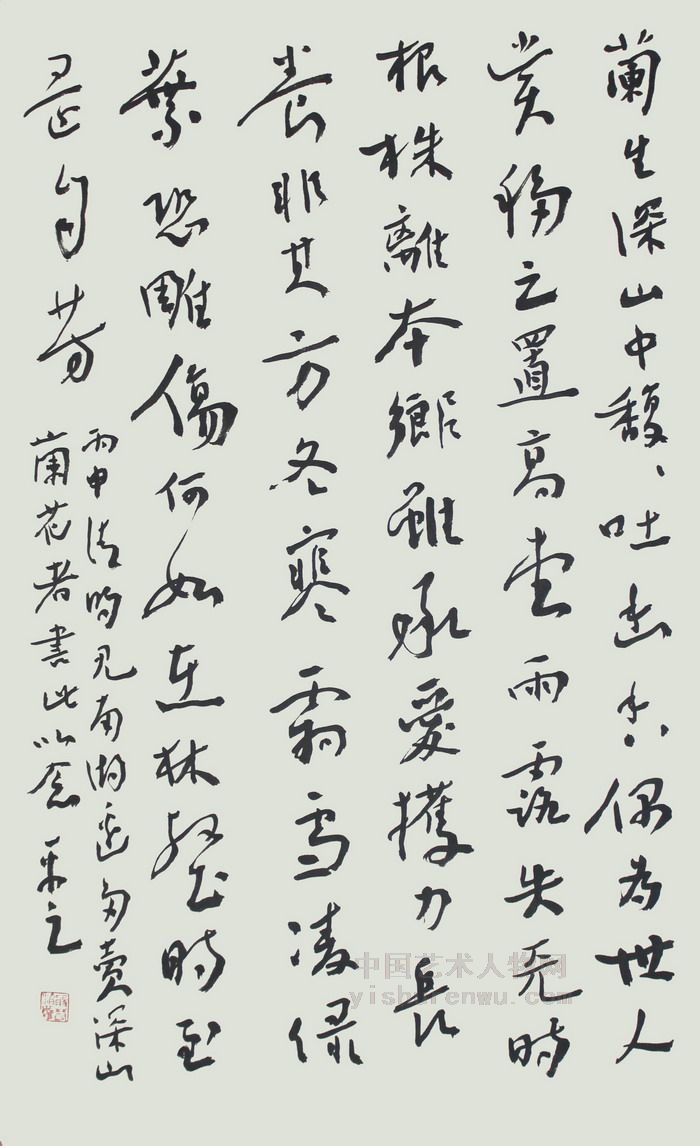 蘭生深山中馥々吐出香偶為世人
賞移之置高堂雨露失天時
根株離本鄉雖承愛護力長
養非其方冬寒霜雪凌綠
葉恐雕傷何如在林壑時至
還自芳
丙申清明見南湖邊有賣深山
蘭花者書此以念
中国艺术人物网
yishurenwu.com